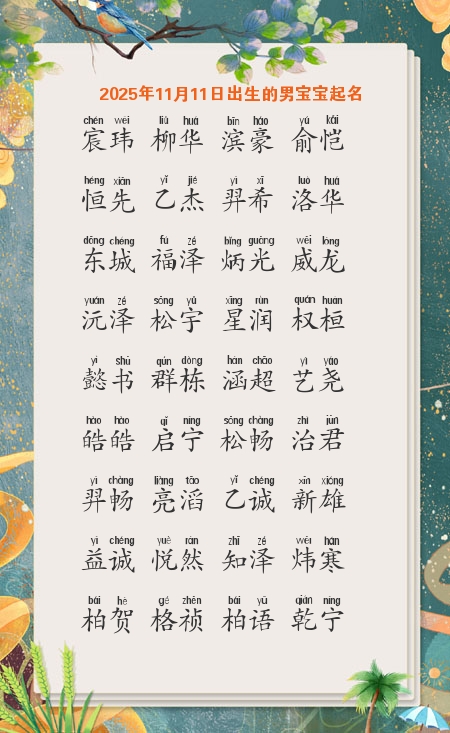 2025年11月11日出生的男宝宝起名
chén wěi liǔ huá bīn háo yú kǎi
宸玮 柳华 滨豪 俞恺
héng xiān yǐ jié yì xī luò huá
恒先 乙杰 羿希 洛华
dōng chéng fú zé bǐng guāng wēi lóng
东城 福泽 炳光 威龙
yuán zé sōng yǔ xīng rùn quán huán
沅泽 松宇 星润 权桓
yì shū qún dòng hán chāo yì yáo
懿书 群栋 涵超 艺尧
hào hào qǐ níng sōng chàng zhì jūn
皓皓 启宁 松畅 治君
yì chàng liàng tāo yǐ chéng xīn xióng
羿畅 亮滔 乙诚 新雄
yì chéng yuè rán zhī zé wěi hán
益诚 悦然 知泽 炜寒
bǎi hè gé zhēn bǎi yǔ qián níng
柏贺 格祯 柏语 乾宁